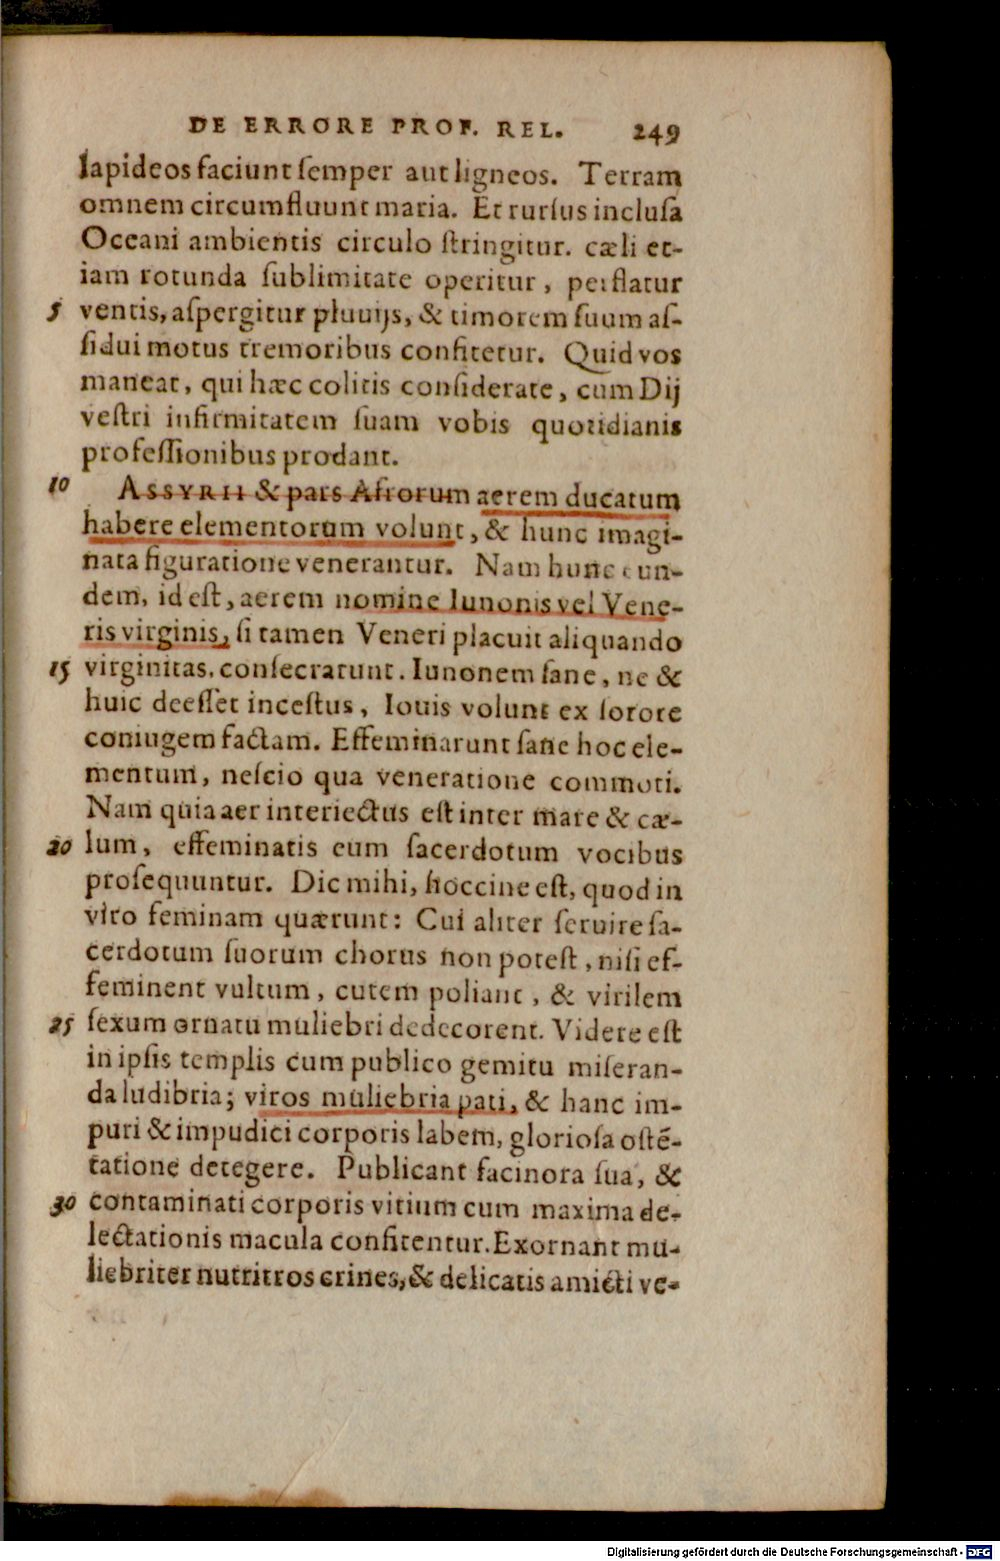 DE ERRORE PROF. REL. 249
lapideos faciunt ſemper aut ligneos. Terram
omnem circumfluunt maria. Et rurſus incluſa
Oceani ambientis circulo ſtringitur. cæli et-
iam rotunda ſublimitate operitur, perflatur
5 ventis, aſpergitur pluuijs, & timorem ſuum aſ-
ſidui motus tremoribus confitetur. Quid vos
maneat, qui hæc colitis conſiderate, cum Dij
veſtri infirmitatem ſuam vobis quotidianis
profeſſionibus prodant.
10 ASSYRII & pars Afrorum aerem ducatum
habere elementorum volunt, & hunc imagi-
nata figuratione venerantur. Nam hunc eun-
dem, id eſt, aerem nomine Iunonis vel Vene-
ris virginis, ſi tamen Veneri placuit aliquando
15 virginitas. conſecrarunt. Iunonem ſane, ne &
huic deeſſet inceſtus, Iouis volunt ex ſorore
coniugem factam. Effeminarunt ſane hoc ele-
mentum, neſcio qua veneratione commoti.
Nam quia aer interiectus eſt inter mare & cæ-
20 lum, effeminatis eum ſacerdotum vocibus
proſequuntur. Dic mihi, hoccine eſt, quod in
viro feminam quærunt: Cui aliter ſeruire ſa-
cerdotum ſuorum chorus non poteſt, niſi ef-
feminent vultum, cutem poliant, & virilem
25 ſexum ornatu muliebri dedecorent. Videre eſt
in ipſis templis cum publico gemitu miſeran-
da ludibria; viros muliebria pati, & hanc im-
puri & impudici corporis labem, glorioſa oſtē-
tatione detegere. Publicant facinora ſua, &
30 contaminati corporis vitium cum maxima de-
lectationis macula confitentur. Exornant mu-
liebriter nutritros crines, & delicatis amicti ve-
Digitalisierung gefördert durch die Deutsche Forschungsgemeinschaft - DFG